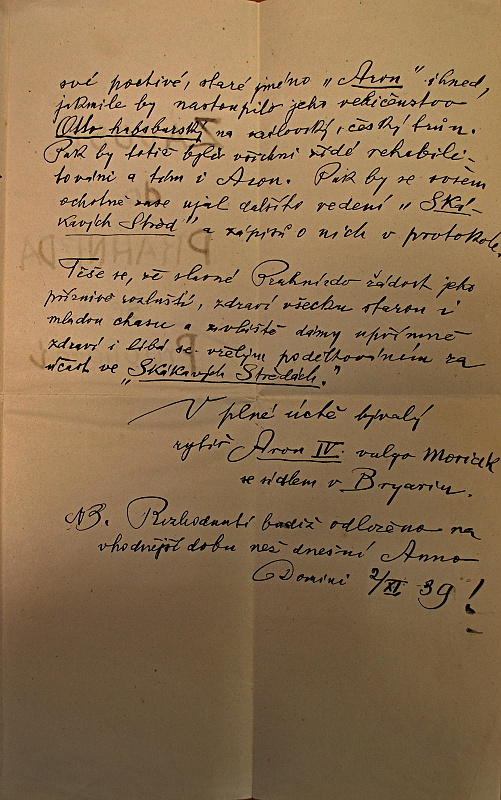 své poctivé, staré jméno „Aron" ihned,
jakmile by nastoupilo jeho veličenstvo
Otto habsburský na královský, český trůn.
Pak by totiž byli všichni židé rehabili-
továni a tím i Aron. Pak by se ovšem
ochotně zase ujal dalšího vedení „Ská-
kavých Střed" a zápisů o nich v protokole.
Těše se, že slavné Prahnědo žádost jeho
příznivě rozluští, zdraví všecku starou i
mladou chasu a zvláště dámy upřímně
zdraví i líbá se vřelým poděkováním za
účast ve „Skákavých Středách."
V plné úctě bývalý
rytíř Aron IV. vulgo Moriak
se sídlem v Bryariu.
NB. Rozhodnutí budiž odloženo na
vhodnější dobu než dnešní Anno
Domini 2/XI 39!